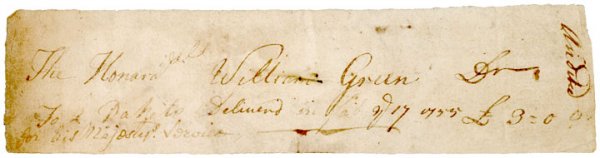 The Honara^ble William Green Dr
To a Delivered ye 17 1755 £ 3=0
for his Majesty's Service